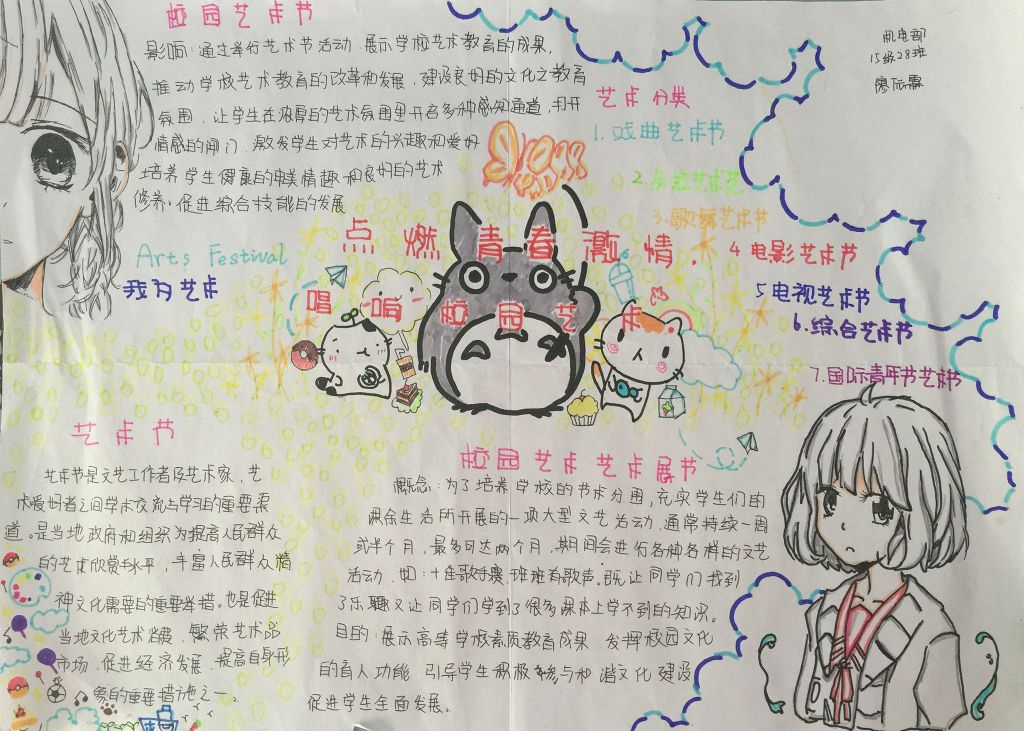 校园艺术节
影响:通过举行艺术节活动 展示学校艺术教育的成果,
推动学校艺术教育的改革和发展,建设良好的文化之教育
氛围,让学生在浓厚的艺术氛围里开启多种感知通道,打开
情感的闸门,激发学生对艺术的兴趣和爱好
培养学生健康的审美情趣和良好的艺术
修养。促进综合技能的发展
Arts Festival
我为艺术
机电部
15级28班
艺术分类
1.戏曲艺术节
3.歌舞艺术节
4电影艺术节
5电视艺术节
6.综合艺术节
7.国际青年节艺术节
点燃青春激情.
唱响校园艺术
艺术节
艺术节是文艺工作者及艺术家,艺
术爱好者之间学术交流与学习的重要渠
道。是当地政府和组织为提高人民群众
的艺术欣赏水平,丰富人民群众精
神文化需要的重要举措。也是促进
当地文化艺术消费,繁荣艺术品
市场,促进经济发展,提高自身形
象的重要措施之一。
校园艺术艺术展节
概念:为了培养学校的节术分围,充实学生们的
课余生活所开展的一项大型文艺活动,通常持续一周
或半个月,最多可达两个月,期间会进行各种各样的文艺
活动,如:十佳歌手赛,班班有歌声。既让同学们找到
了乐趣又让同学们学到了很多课本上学不到的知识。
目的:展示高等学校素质教育成果,发挥校园文化
的育人功能,引导学生积极参与和谐文化建设
促进学生全面发展。